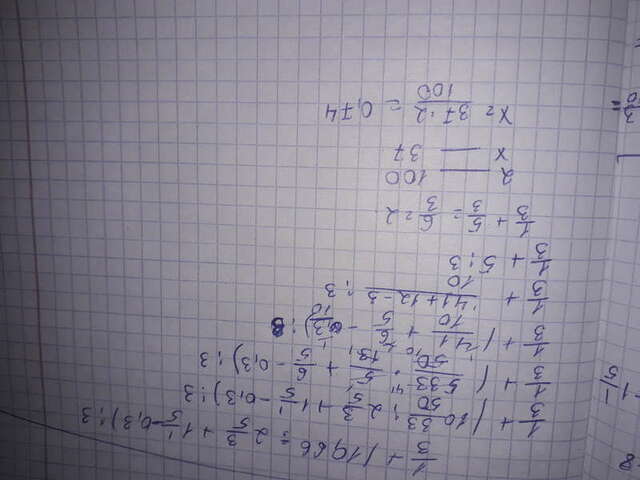 1/3 + (10,66 : 2 3/5 + 1 1/5 - 0,3) : 3
1/3 + (10 33/50 : 2 3/5 + 1 1/5 - 0,3) : 3
1/3 + (533/50 · 5/13 + 6/5 - 0,3) : 3
1/3 + (41/10 + 6/5 - 3/10) : 3
1/3 + 41+12-3/10 : 3
1/3 + 5 : 3
1/3 + 5/3 = 6/3 = 2
2 — 100
x — 37
x = 37·2/100 = 0,74
-8
-1 1/5